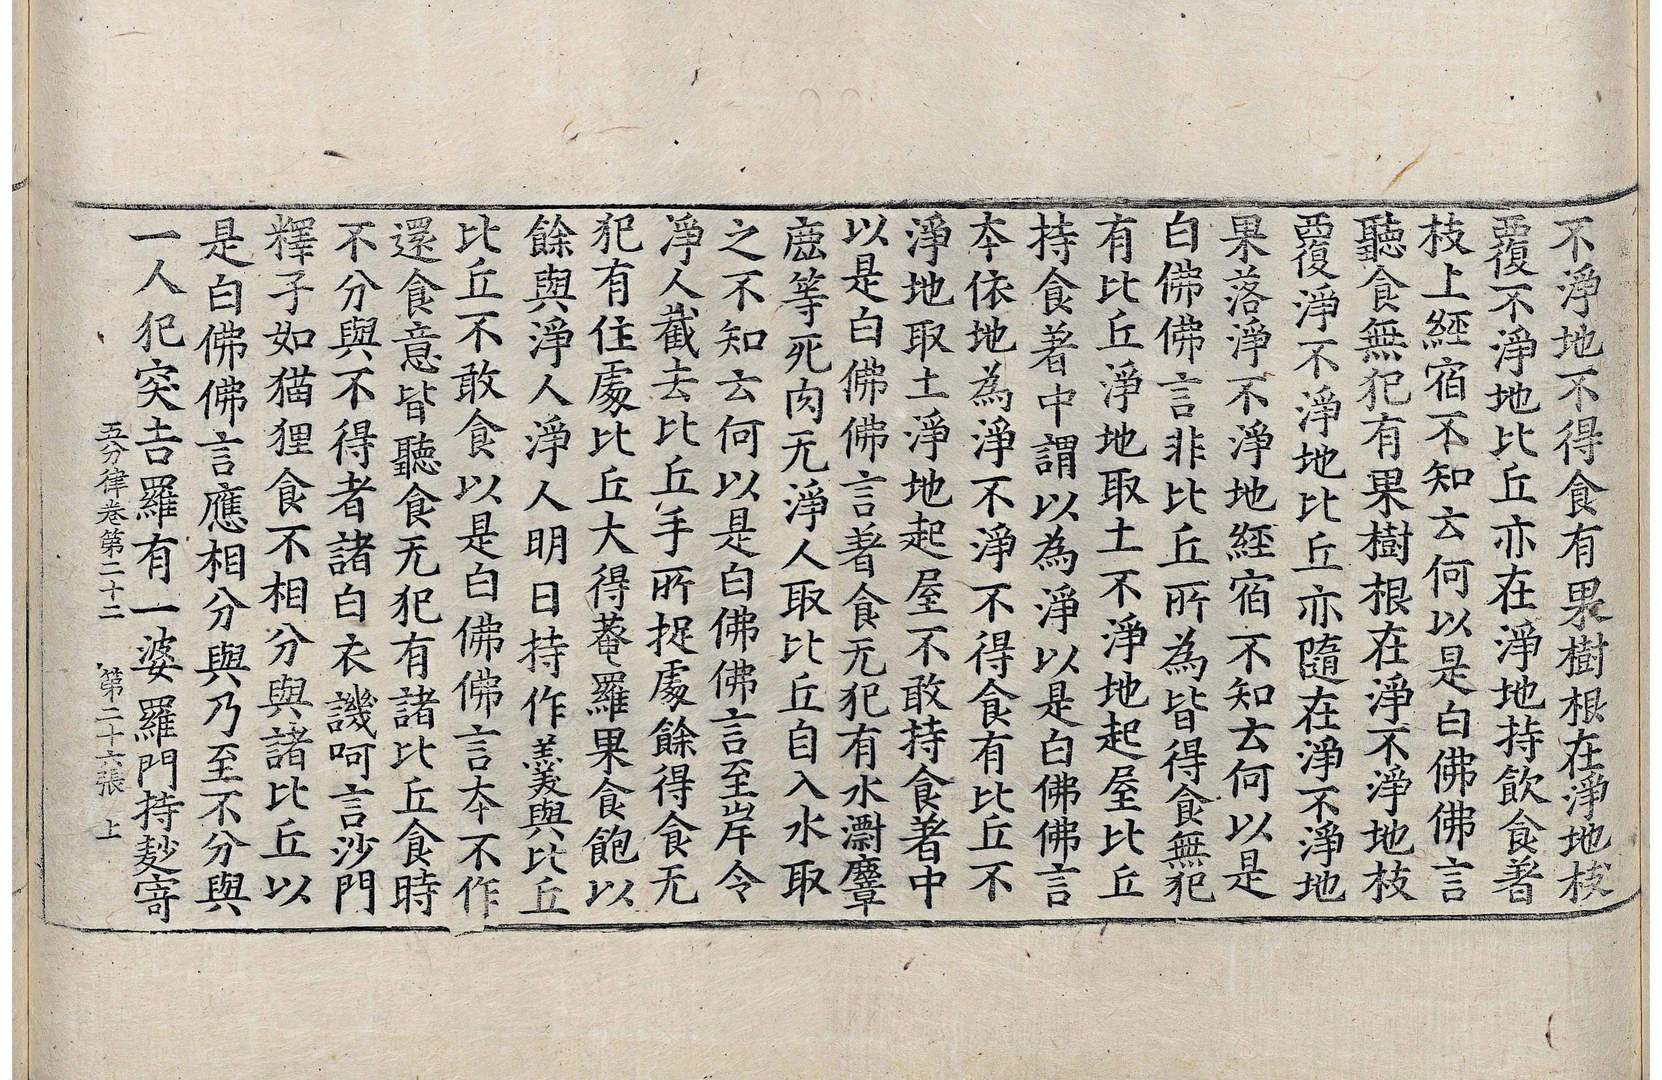 不淨地不得食有果樹根在淨地枝
覆不淨地比丘亦在淨地持飲食著
枝上經宿不知云何以是白佛佛言
聽食無犯有果樹根在淨不淨地枝
覆淨不淨地比丘亦隨在淨不淨地
果落淨不淨地經宿不知云何以是
白佛佛言非比丘所為皆得食無犯
有比丘淨地取土不淨地起屋比丘
持食著中謂以為淨以是白佛佛言
本依地為淨不淨不得食有比丘不
淨地取土淨地起屋不敢持食著中
以是白佛佛言著食无犯有水漂麞
鹿等死肉无淨人取比丘自入水取
之不知云何以是白佛佛言至岸令
淨人截去比丘手所捉處餘得食无
犯有住處比丘大得菴羅果食飽以
餘與淨人淨人明日持作羹與比丘
比丘不敢食以是白佛佛言本不作
還食意皆聽食无犯有諸比丘食時
不分與不得者諸白衣譏呵言沙門
釋子如猫狸食不相分與諸比丘以
是白佛佛言應相分與乃至不分與
一人犯突吉羅有一婆羅門持麨寄
五分律卷第二十二 第二十六張 上